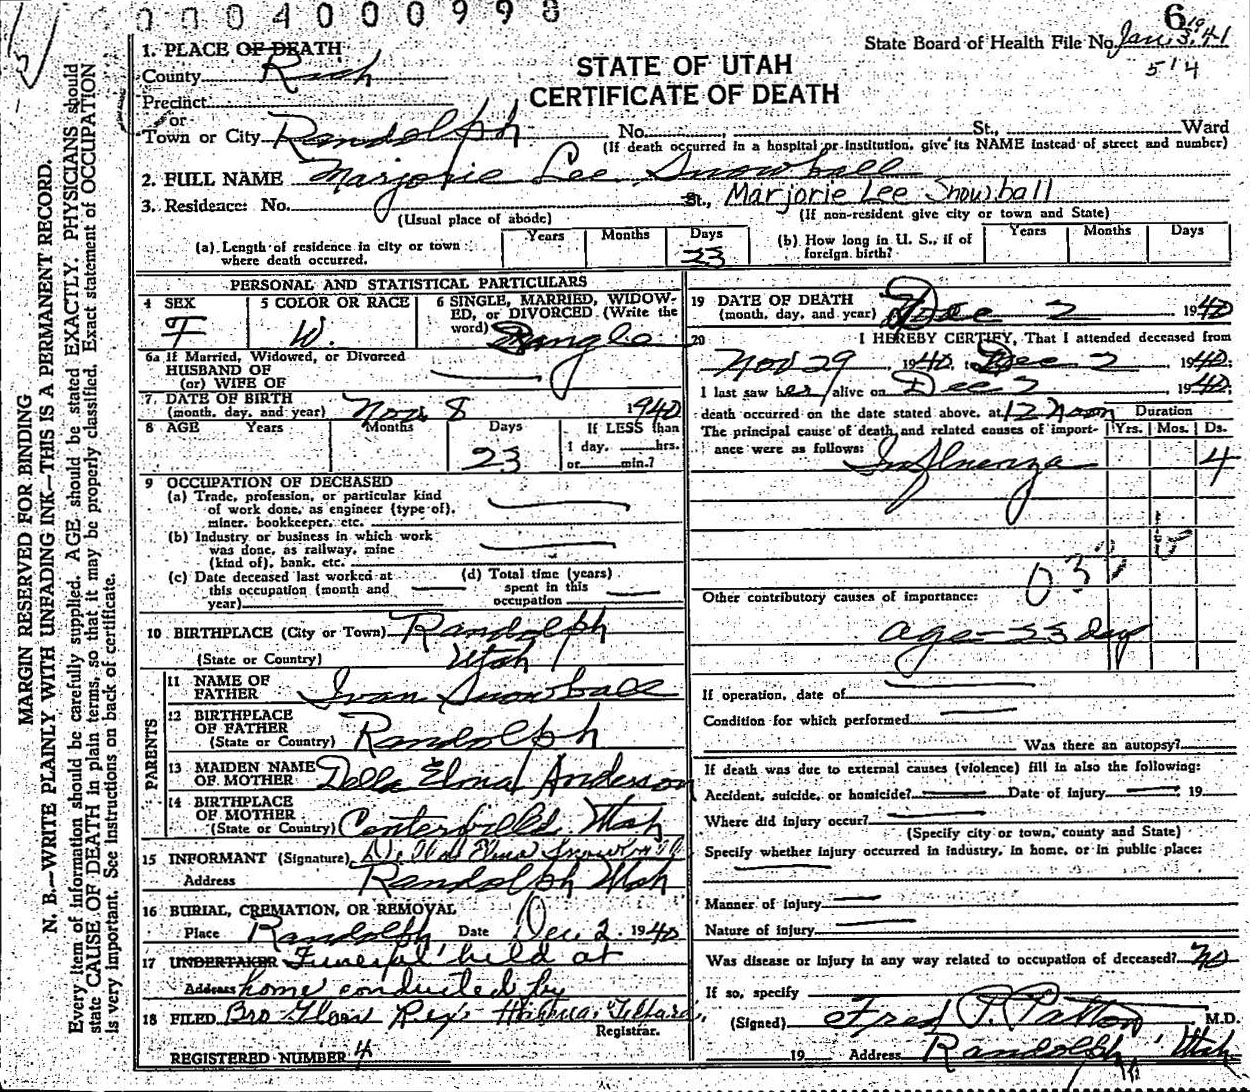 0004000998
6
19
State Board of Health File No. Jan. 3. 41
514
1. PLACE OF DEATH
County Rich
STATE OF UTAH
CERTIFICATE OF DEATH
Precinct
or
Town or City Randolph No. St., Ward
(If death occurred in a hospital or institution, give its NAME instead of street and number)
2. FULL NAME Marjorie Lee Snowball
3. Residence: No. St., Marjorie Lee Snowball
(Usual place of abode) (If non-resident give city or town and State)
(a) Length of residence in city or town where death occurred. Years Months Days 23
(b) How long in U. S., if of foreign birth? Years Months Days
PERSONAL AND STATISTICAL PARTICULARS
4 SEX F
5 COLOR OR RACE W.
6 SINGLE, MARRIED, WIDOWED, or DIVORCED (Write the word) Single
6a If Married, Widowed, or Divorced
HUSBAND OF
(or) WIFE OF
7. DATE OF BIRTH
(month, day, and year) Nov. 8 1940
8 AGE Years Months Days 23 If LESS than 1 day, hrs. or min.?
9 OCCUPATION OF DECEASED
(a) Trade, profession, or particular kind
of work done, as engineer (type of),
miner, bookkeeper, etc.
(b) Industry or business in which work
was done, as railway, mine
(kind of), bank, etc.
(c) Date deceased last worked at
this occupation (month and
year)
(d) Total time (years)
spent in this
occupation
10 BIRTHPLACE (City or Town) Randolph
(State or Country) Utah
PARENTS
11 NAME OF
FATHER Ivan Snowball
12 BIRTHPLACE
OF FATHER
(State or Country) Randolph
13 MAIDEN NAME
OF MOTHER Della Elma Anderson
14 BIRTHPLACE
OF MOTHER
(State or Country) Centerfield Utah
15 INFORMANT (Signature) Della Elma Snowball
Address Randolph Utah
16 BURIAL, CREMATION, OR REMOVAL
Place Randolph Date Dec 2. 1940
17 UNDERTAKER Funeral held at
Address home conducted by
18 FILED Bro
Registrar.
REGISTERED NUMBER 4
19 DATE OF DEATH
(month, day, and year) Dec 2 1940
20 I HEREBY CERTIFY, That I attended deceased from
Nov 29, 1940, to Dec 2 1940;
I last saw her alive on Dec 2 1940;
death occurred on the date stated above, at 12 Noon
Duration
The principal cause of death and related causes of importance were as follows: Yrs. Mos. Ds.
Influenza 4
Other contributory causes of importance:
age - 23 days
If operation, date of
Condition for which performed
Was there an autopsy?
If death was due to external causes (violence) fill in also the following:
Accident, suicide, or homicide? Date of injury 19
Where did injury occur?
(Specify city or town, county and State)
Specify whether injury occurred in industry, in home, or in public place:
Manner of injury
Nature of injury
Was disease or injury in any way related to occupation of deceased? no
If so, specify
(Signed) Fred P. Patton M.D.
19 Address Randolph, Utah
MARGIN RESERVED FOR BINDING
N. B.—WRITE PLAINLY WITH UNFADING INK—THIS IS A PERMANENT RECORD.
Every item of information should be carefully supplied. AGE should be stated EXACTLY. PHYSICIANS should
state CAUSE OF DEATH in plain terms, so that it may be properly classified. Exact statement of OCCUPATION
is very important. See instructions on back of certificate.